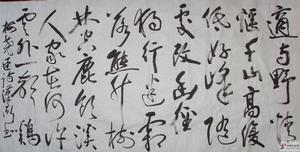 適与野情
惬千山高復
低好峰随
處改幽徑
獨行迷霜
落熊升樹
林空鹿飲溪
人家在何許
雲外一聲鷄
梅尧臣詩